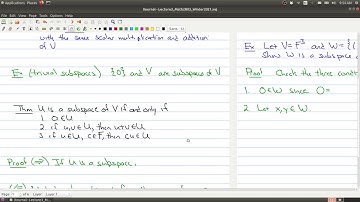 Applications Places
9:24 AM
Xournal - Lecture3_Math2R03_Winter2021.xoj
with the same scalar multiplication and addition
of V
Ex (trivial subspaces) {0} and V are subspaces of V
Thm U is a subspace of V if and only if
1. 0∈U
2. if u,v∈U, then u+v∈U
3. if u∈U, c∈F, then cu∈U
Proof (⇒) If U is a subspace,
Ex Let V=F³ and W={(
Show W is a subspace
Proof Check the three condit
1. 0∈W since 0=
2. Let x,y∈W.